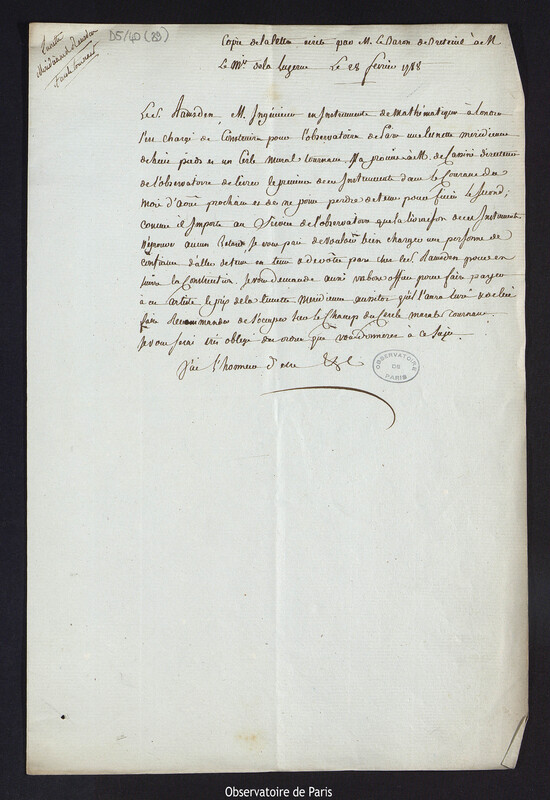 Lunette
Méridienne Ramsden
D5/40 (29)
Copie de la lettre écrite par M. Le Baron de Breteuil à M.
Le Mis de la Luzerne Le 28 février 1788
Le S. Ramsden, M. Ingénieur en Instruments de Mathématique à Londres
l'est chargé de Construire pour l'observatoire de Paris une lunette meridienne
de huit pieds et un Cercle mural tournant. Il a promis à M. de Cassini directeur
de l'observatoire de livrer le premier de ces Instruments dans le Courant du
Mois d'aout prochain et de ne point perdre de tems pour finir le second;
comme il Importe au Service de l'observatoire que la livraison de ces Instruments
n'éprouve aucun Retard, Je vous prie de vouloir bien charger une personne de
Confiance d'aller de tems en tems chez le S. Ramsden pour en
suivre la Construction. Je vous demande aussi vos bons offices pour faire payer
à cet artiste le prix de la lunette Meridienne aussitot qu'il l'aura livré et de lui
faire Recommander de s'occuper sur le Champ du Cercle mural tournant.
Je vous serai très obligé des ordres que vous donnerez à ce sujet.
J'ai l'honneur d'être &c
OBSERVATOIRE DE PARIS
Observatoire de Paris